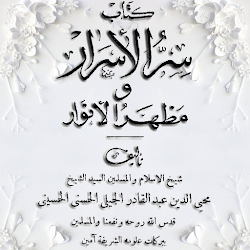 كتاب
سر الأسرار
و
مظهر الأنوار
تأليف
شيخ الإسلام والمسلمين السيد الشيخ
محيي الدين عبد القادر الجيلي الحسني الحسيني
قدس الله روحه ونفعنا والمسلمين
ببركات علومه الشريفة آمين